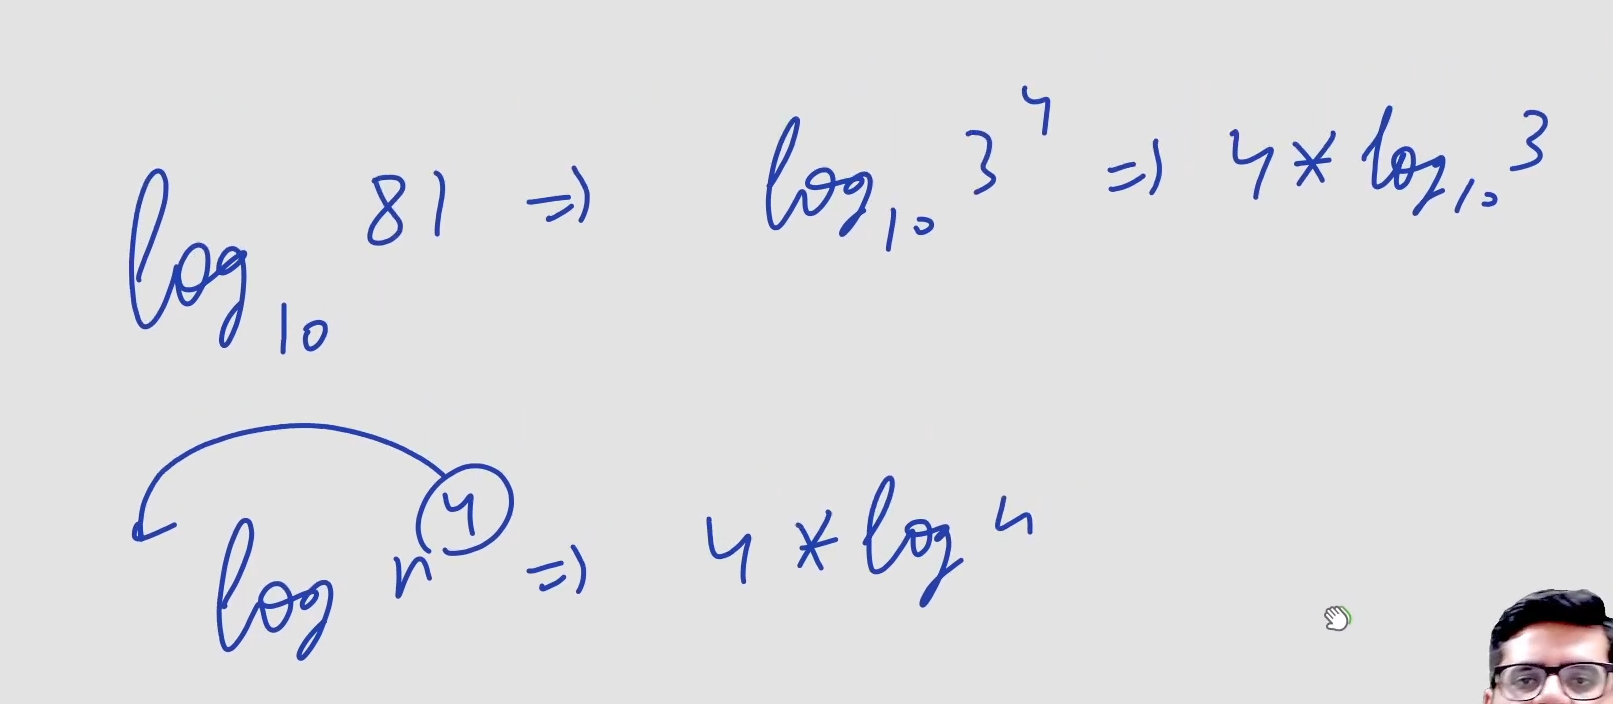 log₁₀ 81 => log₁₀ 3⁴ => 4 * log₁₀ 3
log n⁴ => 4 * log n